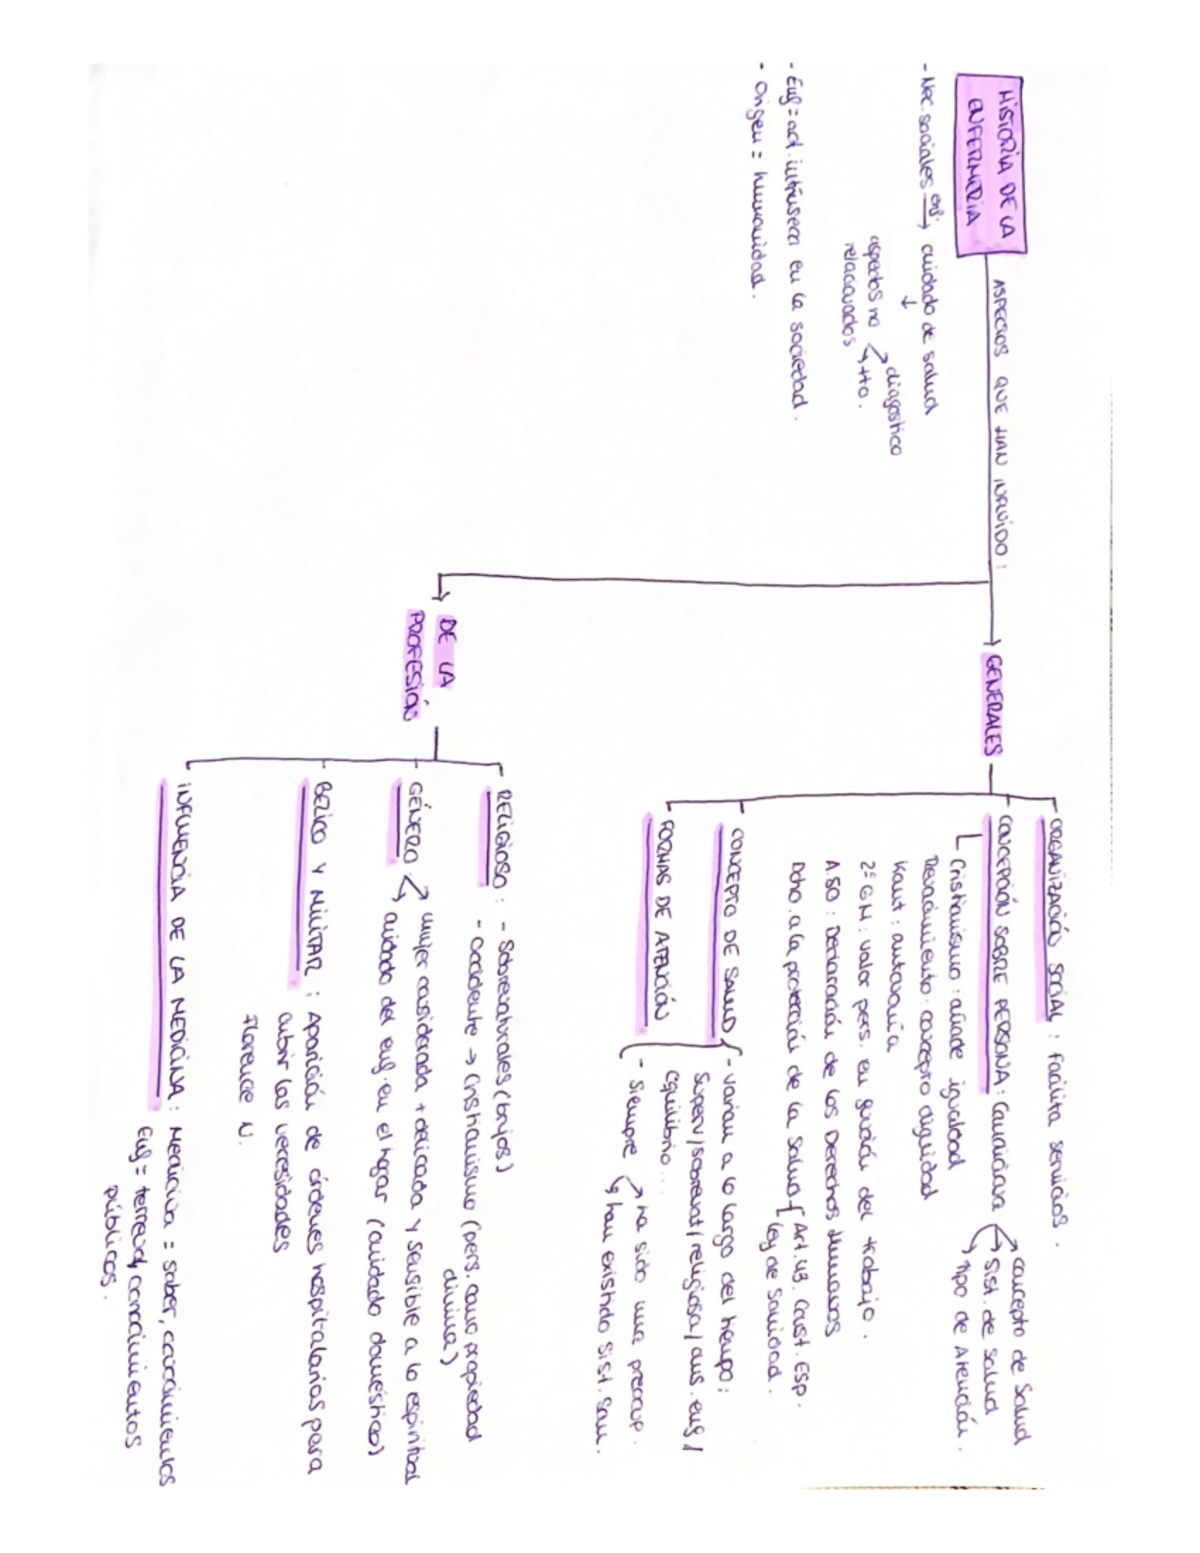 HISTORIA DE LA
ENFERMERIA
ASPECTOS QUE HAN INFLUIDO:
- Nec. sociales enf. → cuidado de salud
↓
aspectos no
relacionados
diagostico
tto.
- Enf = act. intrínseca en la sociedad.
- Origen = humanidad.
GENERALES
ORGANIZACIÓN SOCIAL: Facilita servicios.
CONCEPCIÓN SOBRE PERSONA: Condiciona
concepto de salud
sist. de salud
tipo de Atención.
Cristianismo: añade igualdad
Renacimiento: concepto dignidad
Kant: autonomía
2ª GM: valor pers. en función del trabajo.
A. 50: Declaración de los Derechos Humanos
Dcho. a la protección de la Salud
Art. 43. Const. Esp.
ley de Sanidad.
CONCEPTO DE SALUD
FORMAS DE ATENCIÓN
- varian a lo largo del tiempo:
superv/sobrenat/religiosa/aus. enf/
equilibrio...
- siempre
ha sido una preocup.
han existido sist. san.
DE LA
PROFESIÓN
RELIGIOSO: - Sobrenaturales (brujos)
- Occidente → Cristianismo (pers. como propiedad
divina)
GÉNERO
mujer considerada + delicada y sensible a lo espiritual
cuidado del enf. en el hogar (cuidado doméstico)
BELICO Y MILITAR: Aparición de órdenes hospitalarias para
cubrir las necesidades
Florence N.
INFLUENCIA DE LA MEDICINA: Medicina = saber, conocimientos
Enf = conocimientos
públicos.